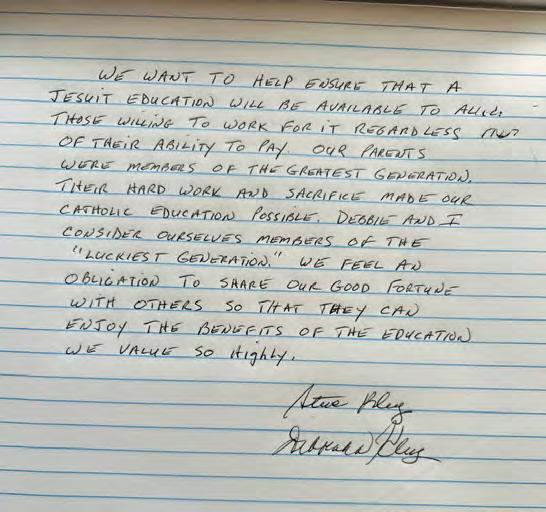 WE WANT TO HELP ENSURE THAT A
JESUIT EDUCATION WILL BE AVAILABLE TO ALL
THOSE WILLING TO WORK FOR IT REGARDLESS
OF THEIR ABILITY TO PAY. OUR PARENTS
WERE MEMBERS OF THE GREATEST GENERATION.
THEIR HARD WORK AND SACRIFICE MADE OUR
CATHOLIC EDUCATION POSSIBLE. DEBBIE AND I
CONSIDER OURSELVES MEMBERS OF THE
"LUCKIEST GENERATION." WE FEEL AN
OBLIGATION TO SHARE OUR GOOD FORTUNE
WITH OTHERS SO THAT THEY CAN
ENJOY THE BENEFITS OF THE EDUCATION
WE VALUE SO HIghly.
Steve
Deborah